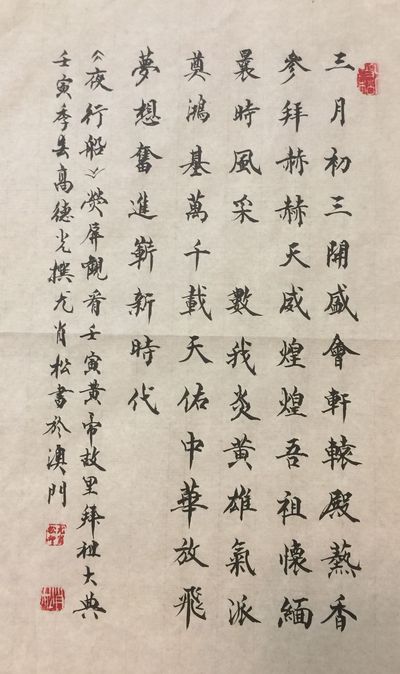 三月初三開盛會軒轅殿熱香
參拜赫赫天威煌煌吾祖懷緬
曩時風采 數我炎黃雄氣派
奠鴻基萬千載天佑中華放飛
夢想奮進嶄新時代
《夜行船》熒屏觀看壬寅黃帝故里拜祖大典
壬寅季春高德光撰尤肖松書於澳門